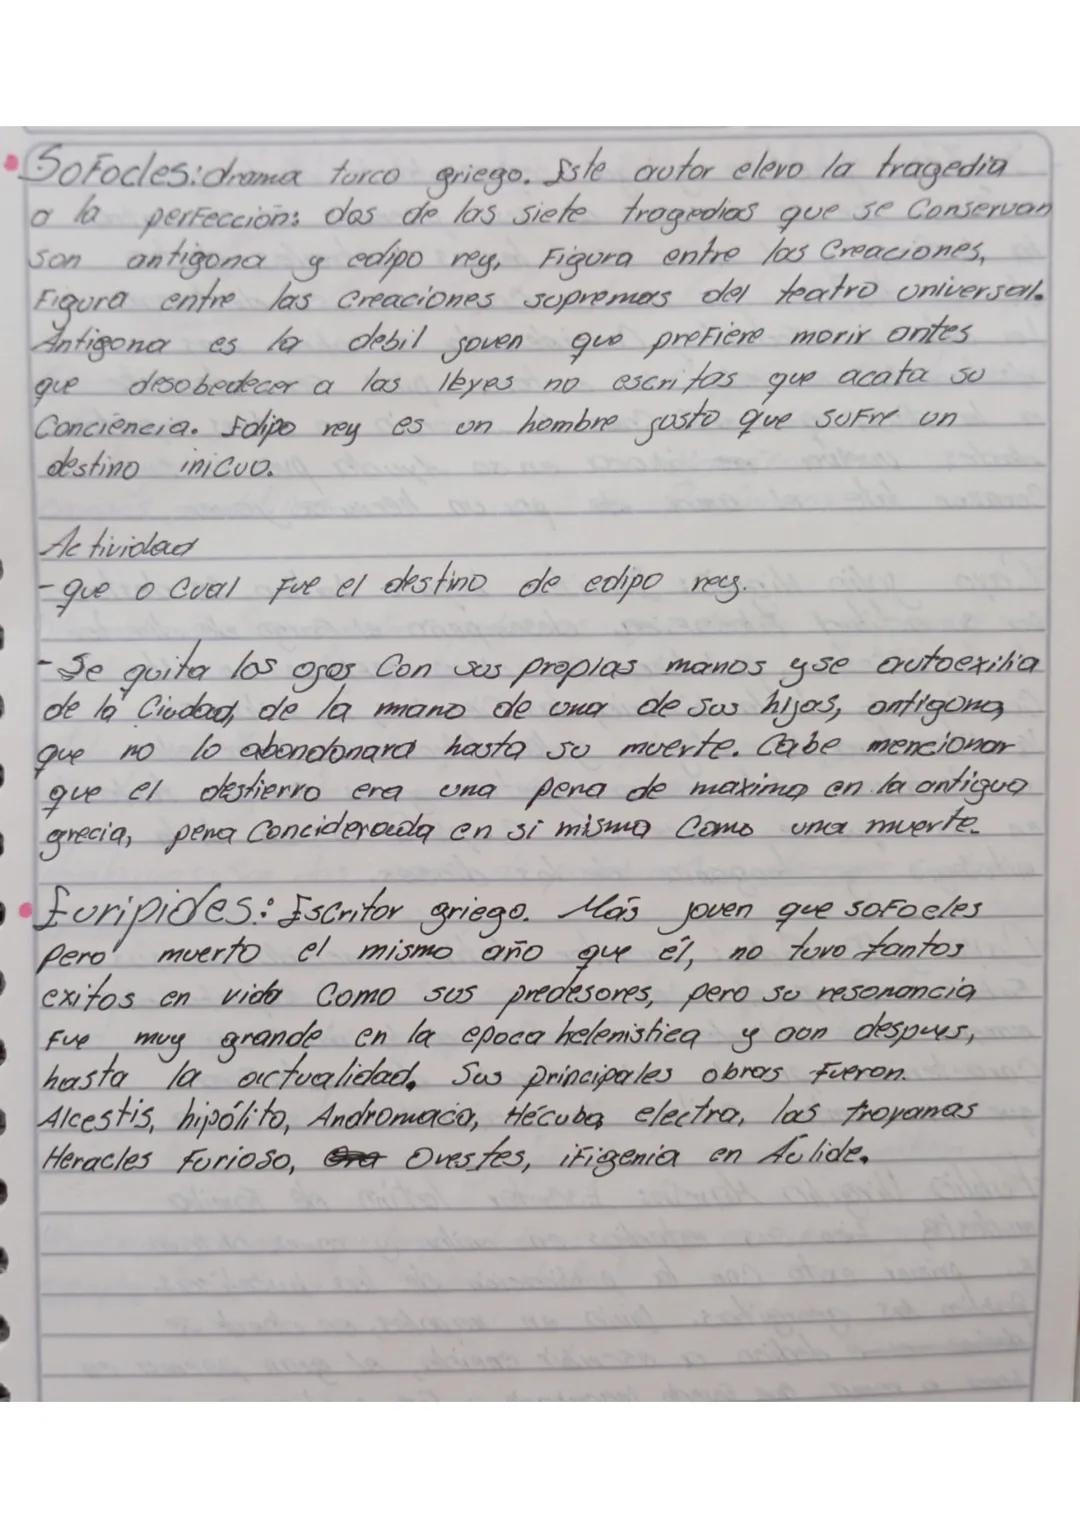 Sofocles: drama turco griego. Este autor elevo la tragedia
a la perfección: dos de las siete tragedias que se Conservan
son antigona y edipo rey, Figura entre las Creaciones,
Figura entre las Creaciones supremas del teatro universal.
Antigona es la debil joven que prefiere morir antes
que desobedecer a las lbyes no escritas que acata su
Conciencia. Edipo rey es un hombre justo que sufre un
destino inicuo.
Actividad
- que o Cual Fue el destino de edipo rey.
- Se quita los ojos Con sus propias manos y se autoexilia
de la Ciudad, de la mano de una de sus hijas, antigona,
que no lo abandonara hasta su muerte. Cabe mencionar
que el destierro era una pena de maxima en la antigua
grecia, pena Conciderada en si misma Como una muerte.
Euripides: Escritor griego. Más joven que sofocles
Pero muerto el mismo año que él, no tuvo tantos
exitos en vida Como sus predesores, pero su resonancia
Fue muy grande en la epoca helenistica y aon despues,
hasta la actualidad. Sus principales obras Fueron.
Alcestis, hipólito, Andromaca, Hécuba, electra, las troyanas
Heracles Furioso, Orestes, iFigenia en Áulide.